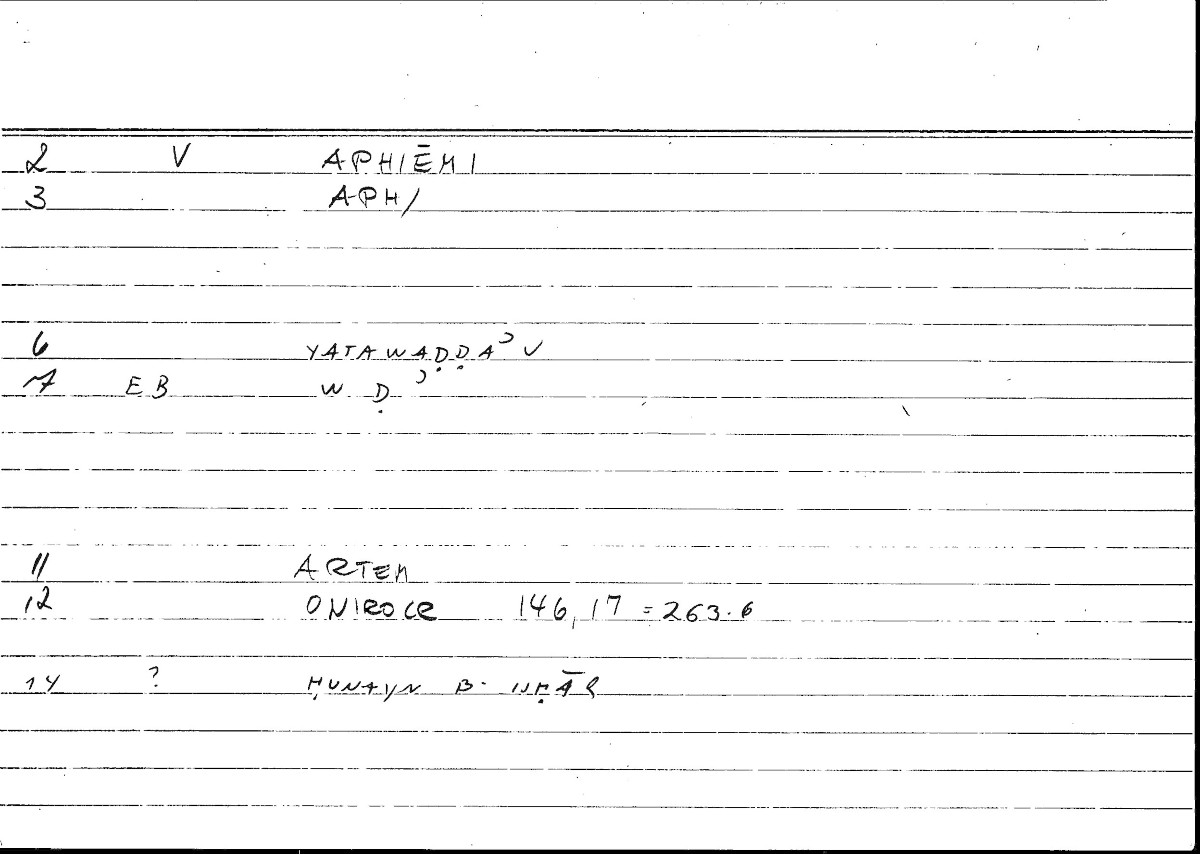 2 V APHIĒMI
3 APH/
6 YATAWAḌḌAʾU
7 EB W Ḍ ʾ
11 ARTEM
12 ONIROCR 146,17 = 263.6
14 ? ḤUNAYN B.